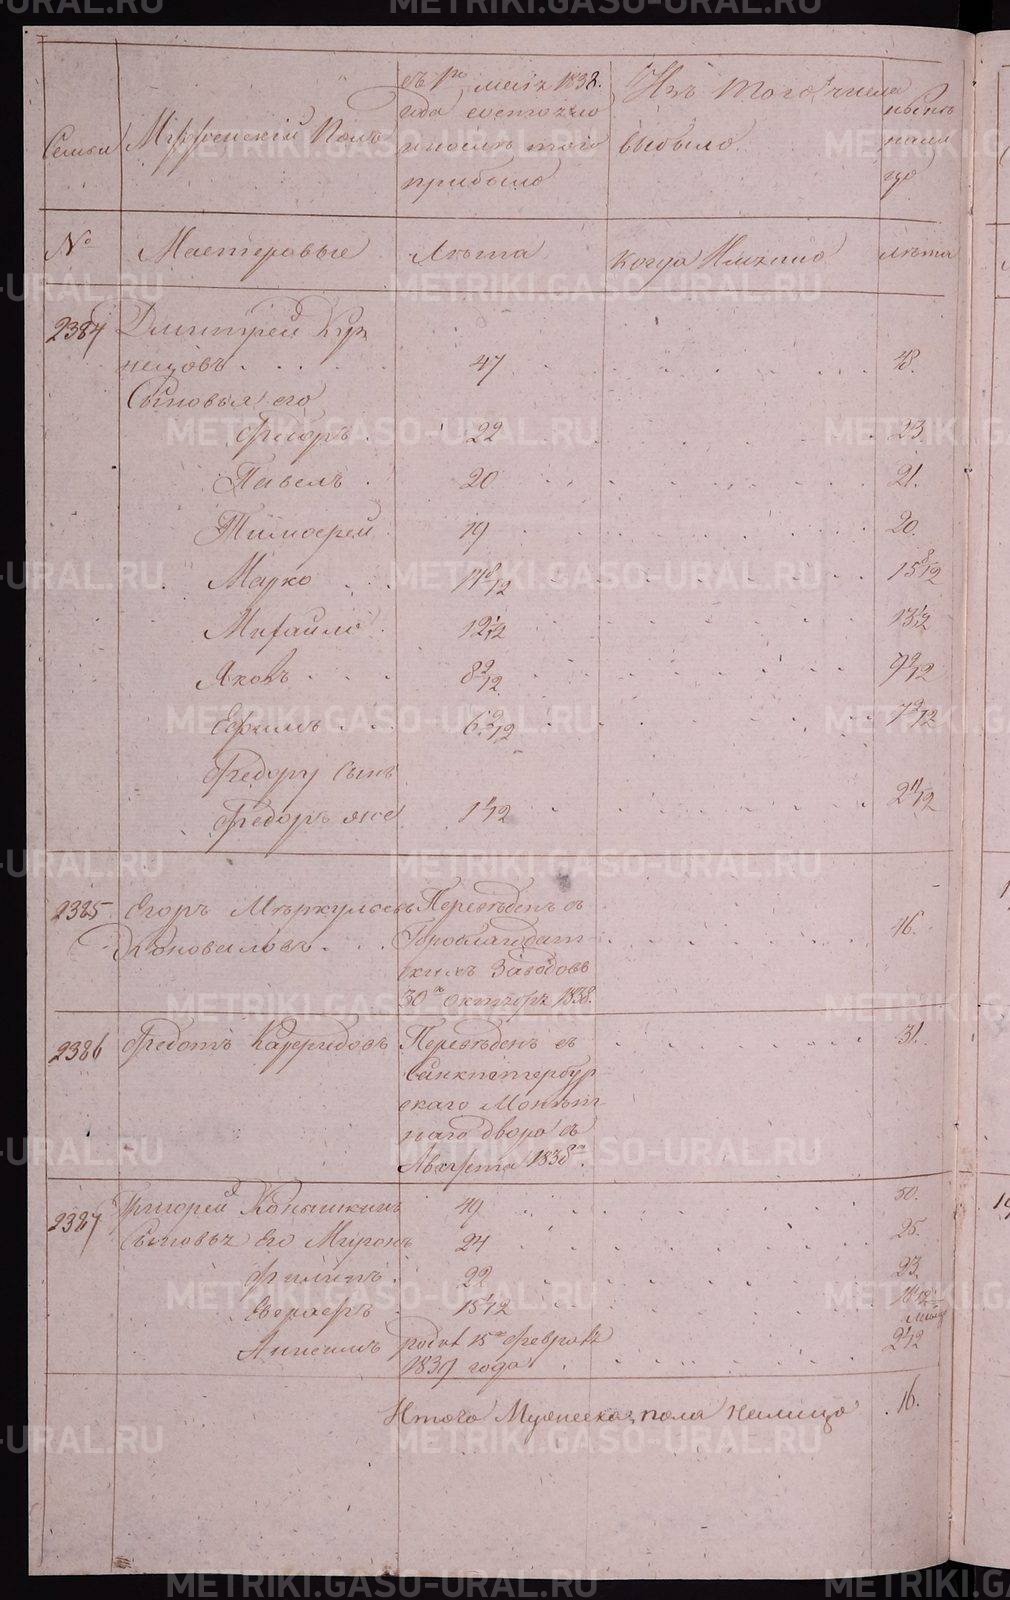 Семьи
Мужескiй Полъ
съ 1го маiя 1838.
года состояло
и послѣ того
прибыло
Изъ того числа
выбыло
нынѣ
на ли
цо
№
Мастеровые
Лѣта
когда Имянно
лѣта
2384 Дмитрей Куз
нецовъ 47 48.
Сыновья его
Фѣдоръ 22 23.
Павелъ 20 21.
Тимофей 19 20.
Марко 14 8/12 15 8/12
Михайло 12 1/2 13 1/2
Яковъ 8 9/12 9 9/12
Ефимъ 6 9/12 7 9/12
Федору сынъ
Федоръ же 1 1/12 2 1/12
2385 Егоръ Мѣркульевъ Переведенъ съ
Коноваловъ Гороблагодат
скихъ Заводовъ 16.
30го октября 1838.
2386 Федотъ Переведенъ съ 31.
Санктпетербур
скаго Монѣт
наго двора съ
Августа 1838го.
2387 Григорей Конышкинъ 49 50.
Сыновья его Миронъ 24 25.
Филипъ 22 23.
15 1/12 16 1/12
Анисимъ родил 15го февраля
1837 года 2 1/2
Итого Мужеска пола налицо 16.
METRIKI.GASO-URAL.RU